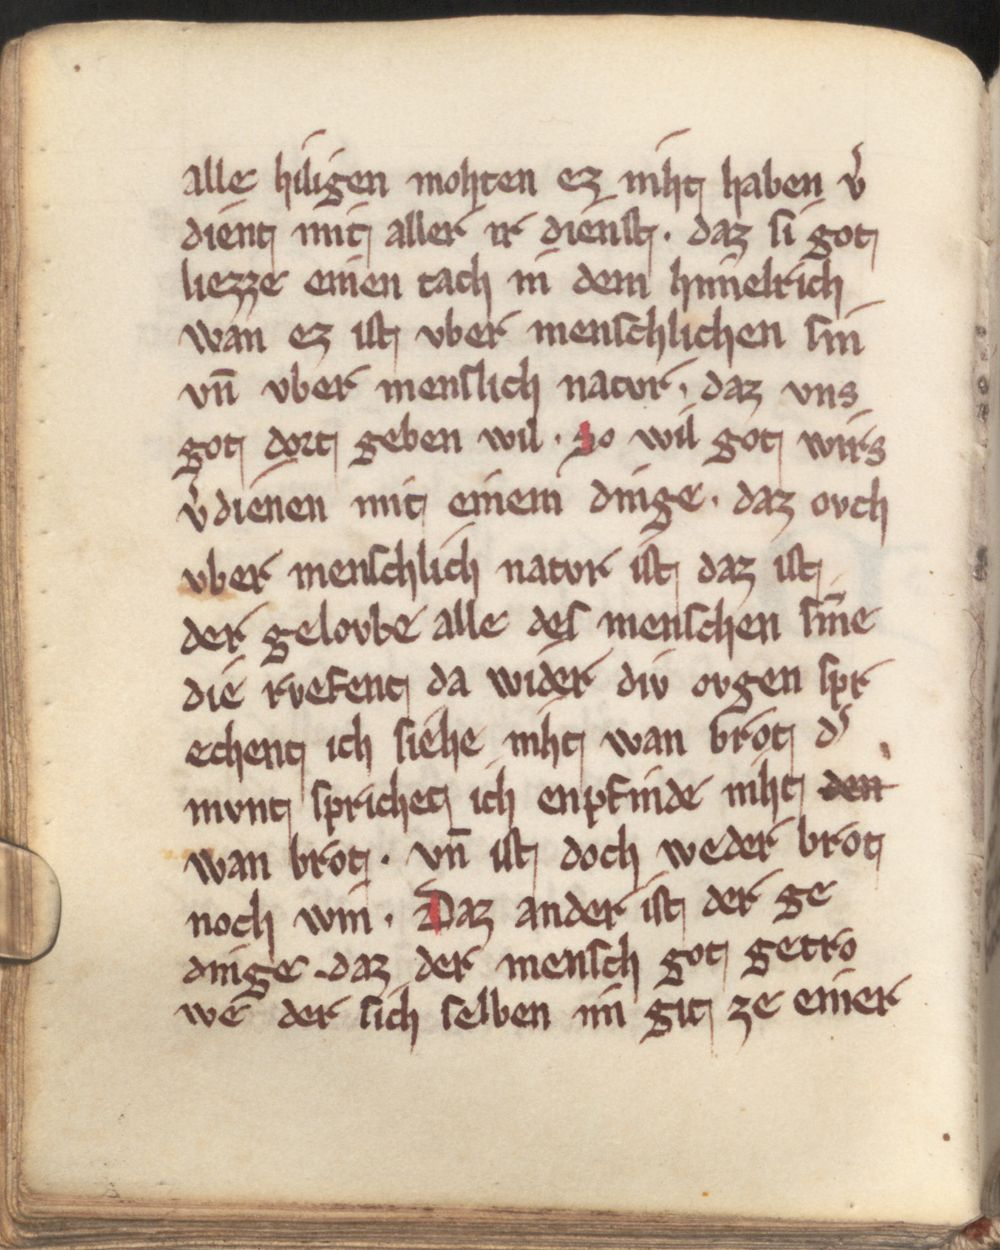 alle hiligen mohten ez niht haben v̾
dient mit aller ir dienst · daz si got
liezze einen tach in dem himelrich
wan ez ist vber menschlichen sin
vn̄ vber menslich natvr · daz vns
got dort geben wil · So wil got wirs
v̾dienen mit einem dinge · daz ovch
vber menschlich natvr ist daz ist
der gelovbe alle des menschen sin̄e
die rvefent da wider div ovgen spr
echent ich siehe niht wan brot d̾
mvnt sprichet ich enpfinde niht den
wan brot · vn̄ ist doch weder brot
noch win · Daz ander ist der ge
dinge · daz der mensch got getro
we der sich selben im git ze einer